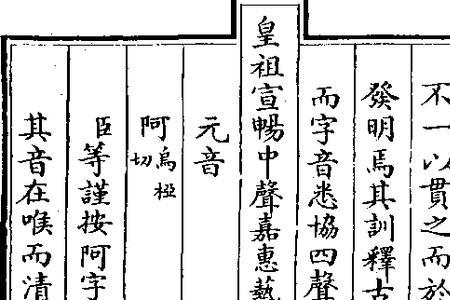 不一以貫之而於
發明焉其訓釋古
而字音悉協四聲
皇祖宣暢中聲嘉惠藝
元音
阿烏椏切
臣等謹按阿字
其音在喉而清